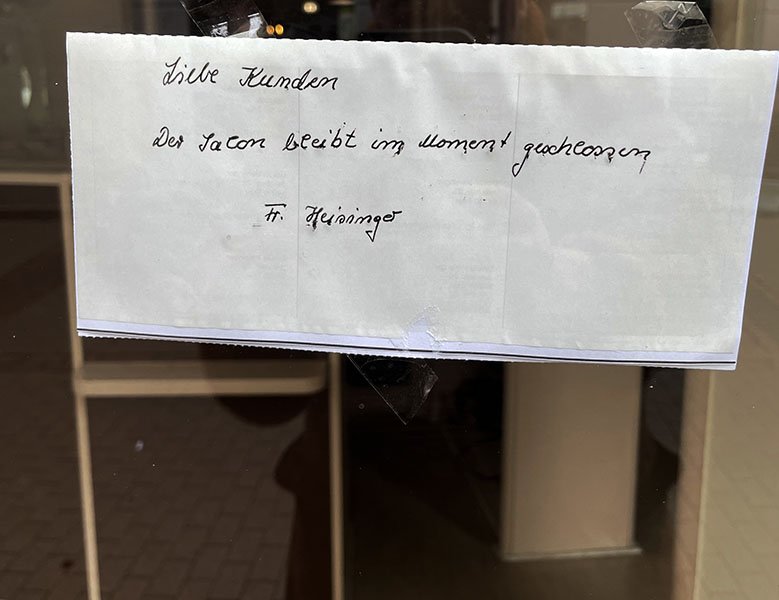 Liebe Kunden
Der Salon bleibt im Moment geschlossen
Fr. Heisinger